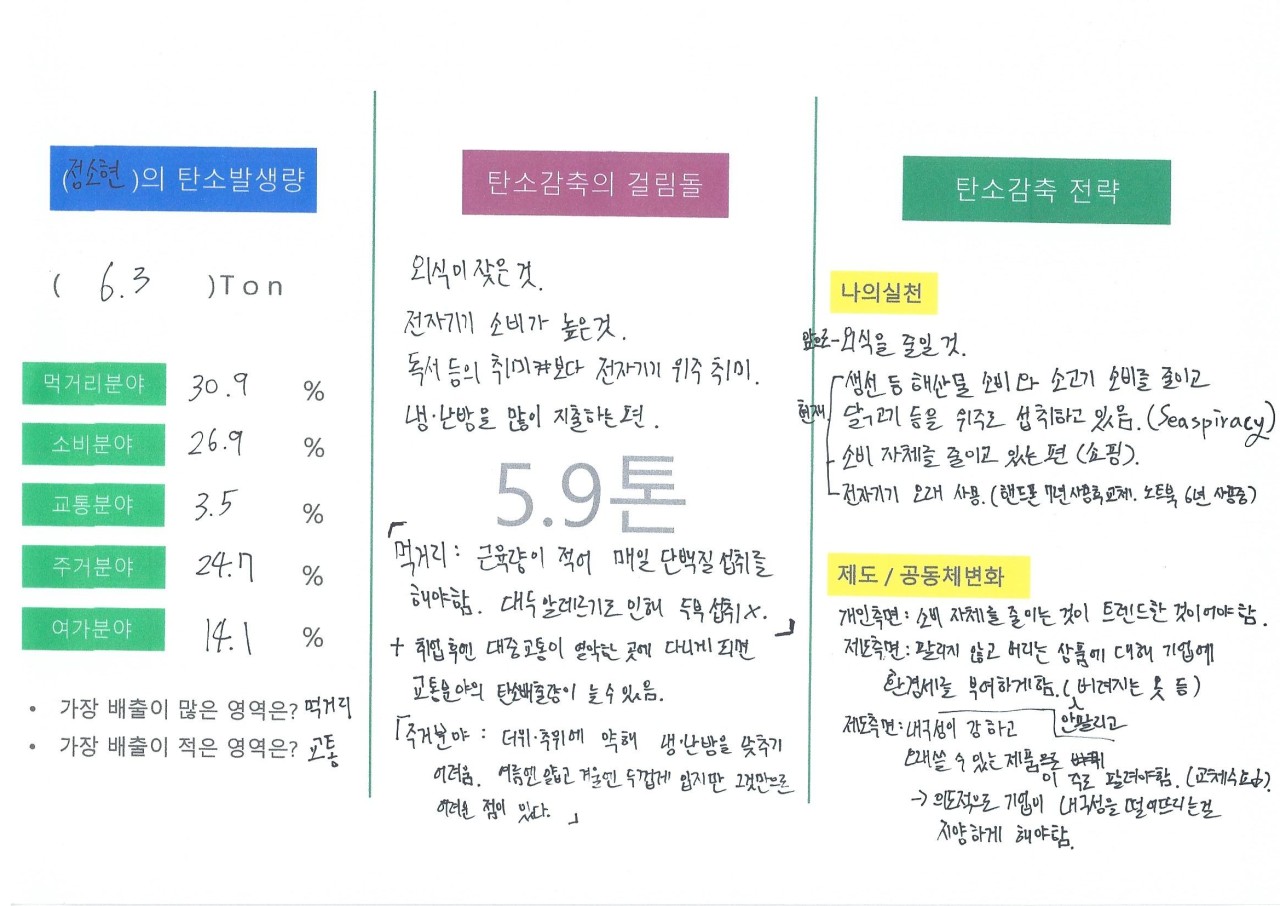 (점소현)의 탄소발생량
( 6.3 )Ton
먹거리분야 30.9 %
소비분야 26.9 %
교통분야 3.5 %
주거분야 24.7 %
여가분야 14.1 %
• 가장 배출이 많은 영역은? 먹거리
• 가장 배출이 적은 영역은? 교통
탄소감축의 걸림돌
외식이 잦은 것.
전자기기 소비가 높은것.
독서 등의 취미보다 전자기기 위주 취미.
냉·난방을 많이 지출하는 편.
5.9톤
「먹거리 : 근육량이 적어 매일 단백질 섭취를
해야함. 대두 알레르기로 인해 두부 섭취 X.」
+ 취업 후엔 대중교통이 열악한 곳에 다니게 되면
교통분야의 탄소배출량이 늘 수 있음.
「주거분야 : 더위·추위에 약해 냉·난방을 맞추기
어려움. 여름엔 얇고 겨울엔 두껍게 입지만 그것만으론
어려운 점이 있다.」
탄소감축 전략
나의실천
앞으로-외식을 줄일 것.
현재 생선 등 해산물 소비와 소고기 소비를 줄이고
닭고기 등을 위주로 섭취하고 있음. (Seaspiracy)
소비 자체를 줄이고 있는 편 (쇼핑).
전자기기 오래 사용. (핸드폰 7년 사용후 교체. 노트북 6년 사용중)
제도 / 공동체변화
개인측면 : 소비 자체를 줄이는 것이 트렌드한 것이어야 함.
제도측면 : 팔리지 않고 버리는 상품에 대해 기업에
환경세를 부여하게함. (안팔리고 버려지는 옷 등)
제도측면 : 내구성이 강하고
오래쓸 수 있는 제품이 주로 팔려야함. (교체수요↓).
→ 의도적으로 기업이 내구성을 떨어뜨리는걸
지양하게 해야함.